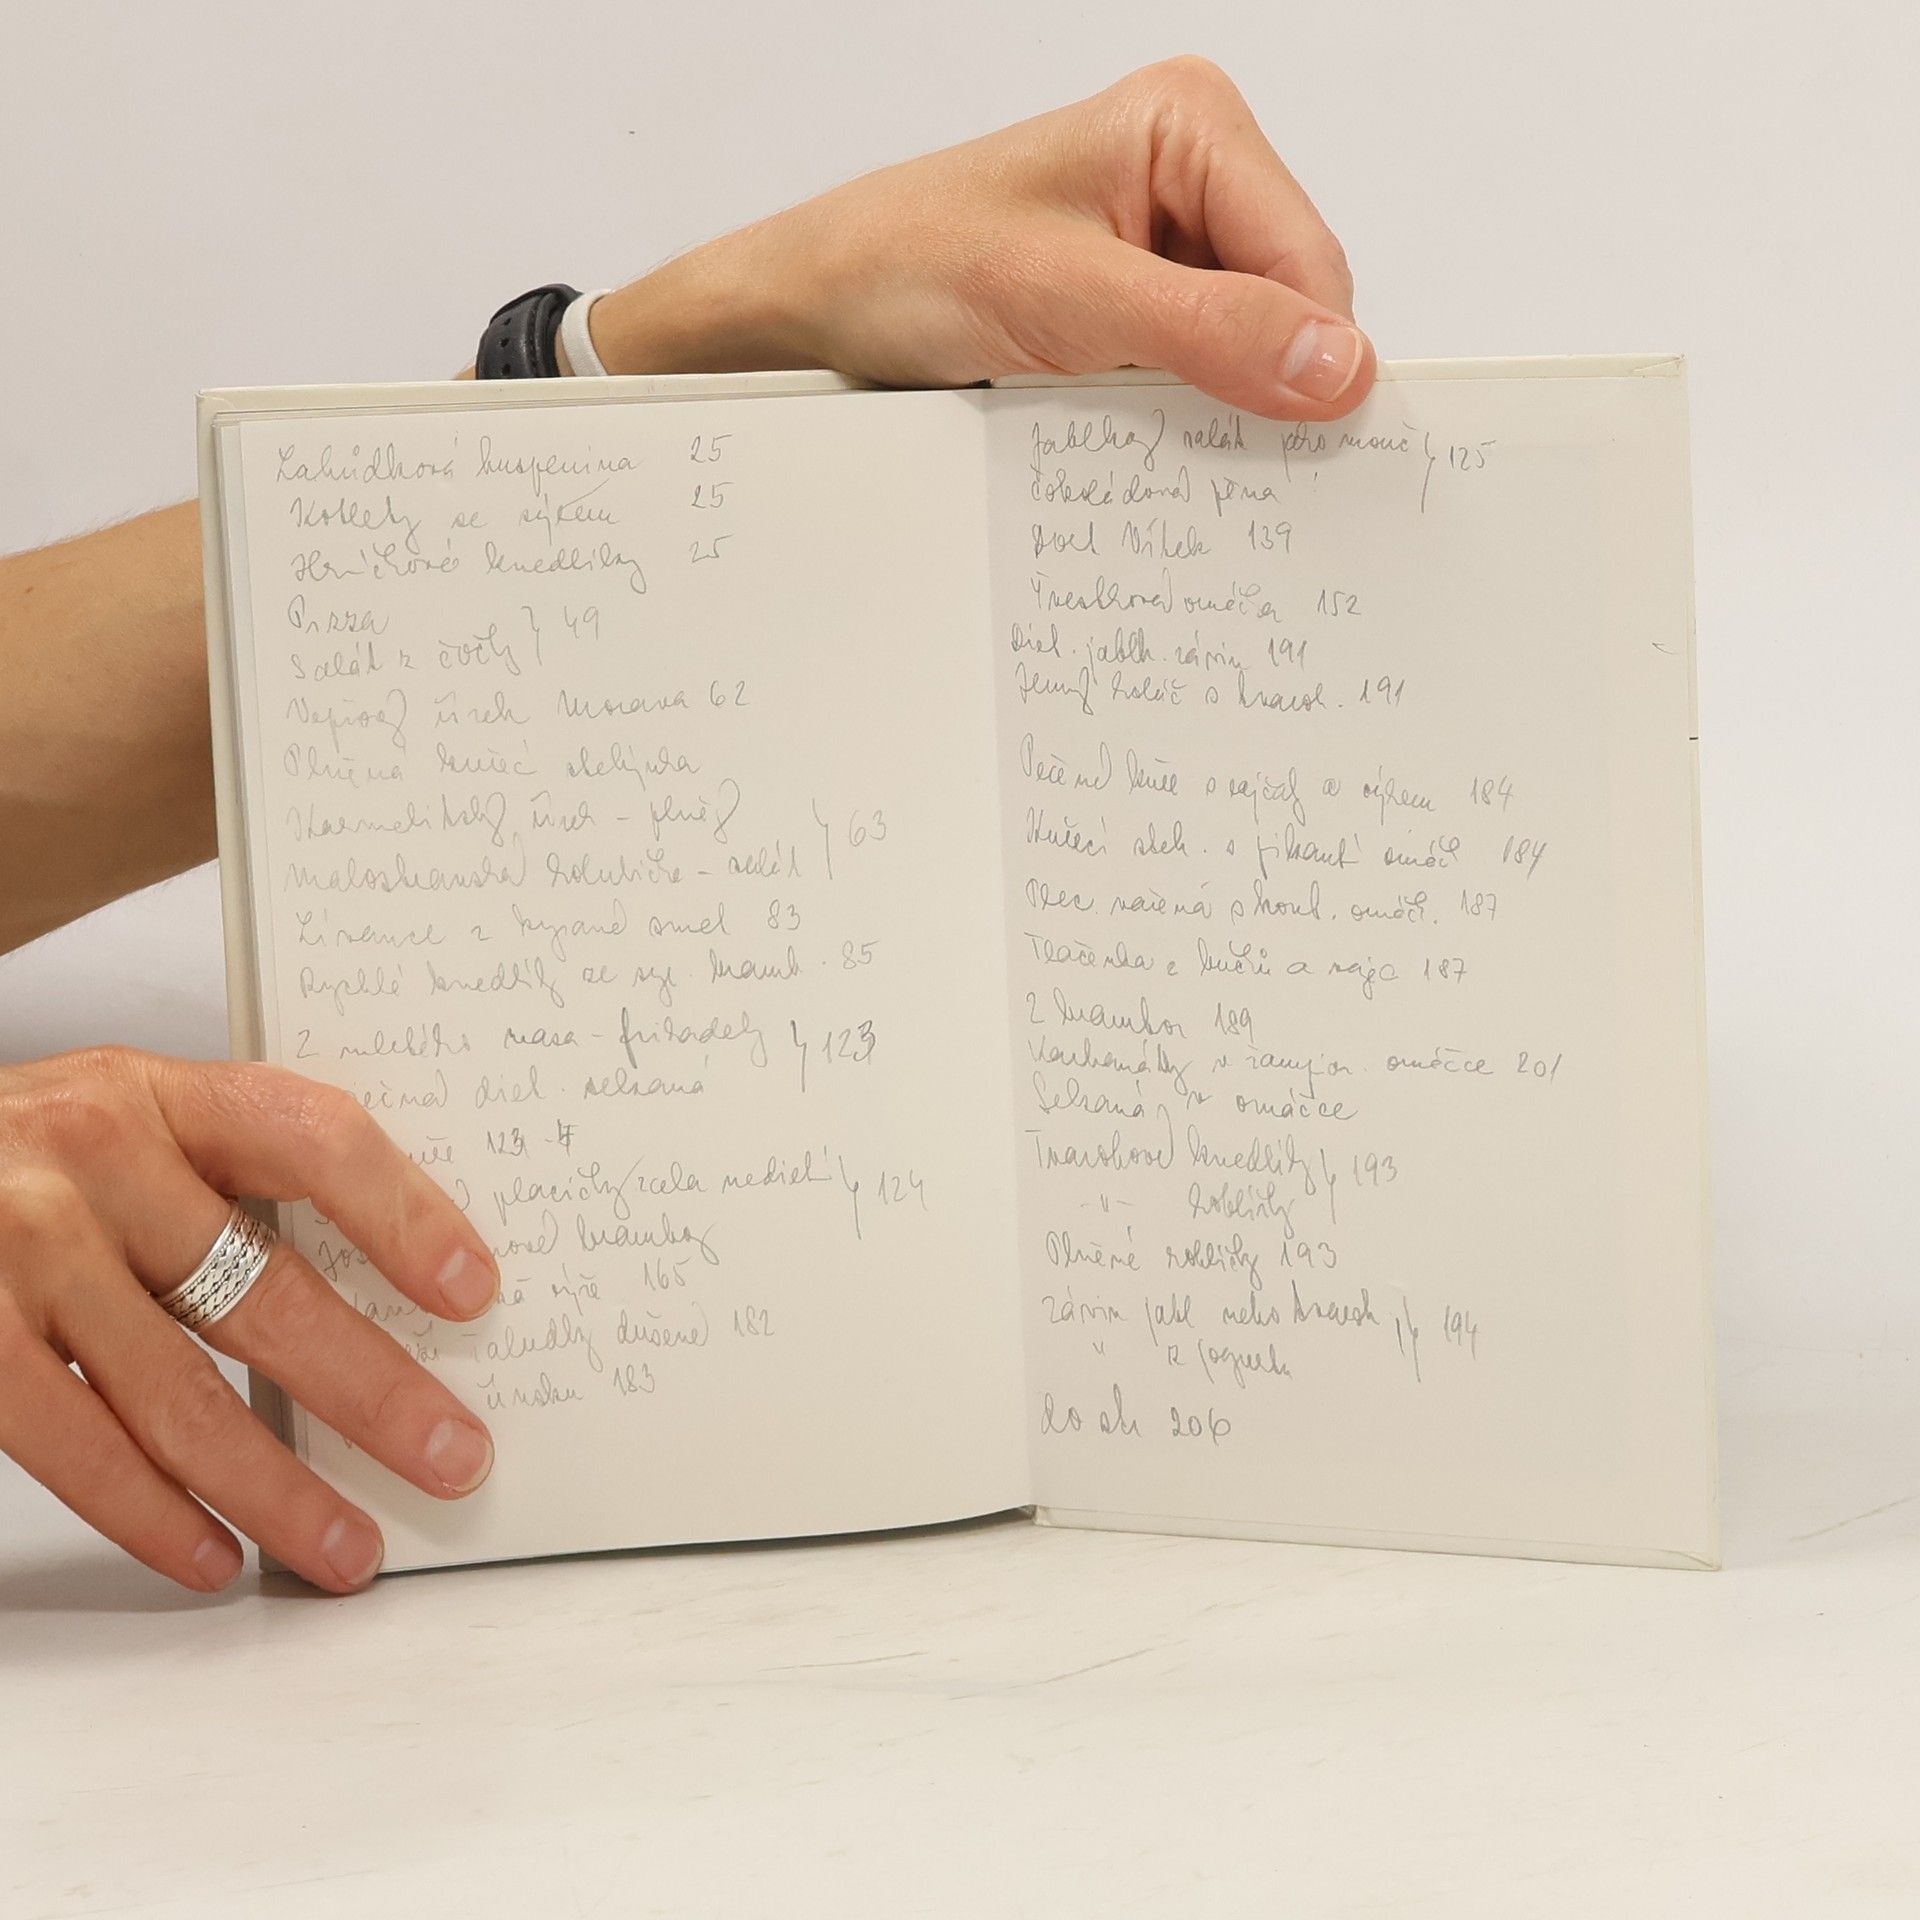 Lahůdková huspenina 25
Kotlety se sýrem 25
Hráškové knedlíky 25
Pizza
Salát z čočky } 49
Vepřový řízek Morava 62
Plněná kuřecí stehýnka
Karmelitský řízek - plněý
Malostranská holubička - salát } 63
Lívance z kysané smet 83
Rychlé knedlíky ze syr. bramb. 85
Z mletého masa - frikadely } 123
diet. sekaná
123 - 4
placičky zcela nedietí } 124
brambory
rýže 165
žaludky dušené 182
183
Jablkový salát jako mouč } 125
čokoládová pěna
Dort Vítek 139
Švestková omáčka 152
Diet. jablk. závin 191
Jemný koláč s tvaroh. 191
Pečené kuře s rajčaty a sýrem 184
Kuřecí steh. s pikantí omáč 184
Plec. vařená s omáčk. 187
Tlačenka z buřtů a vajec 187
Z brambor 189
Karbanátky v žampion. omáčce 201
Sekaná v omáčce
Tvarohové knedlíky } 193
-"- koblížky
Plněné rohlíčky 193
Závin jabl nebo tvaroh } 194
" z jogurtu
206